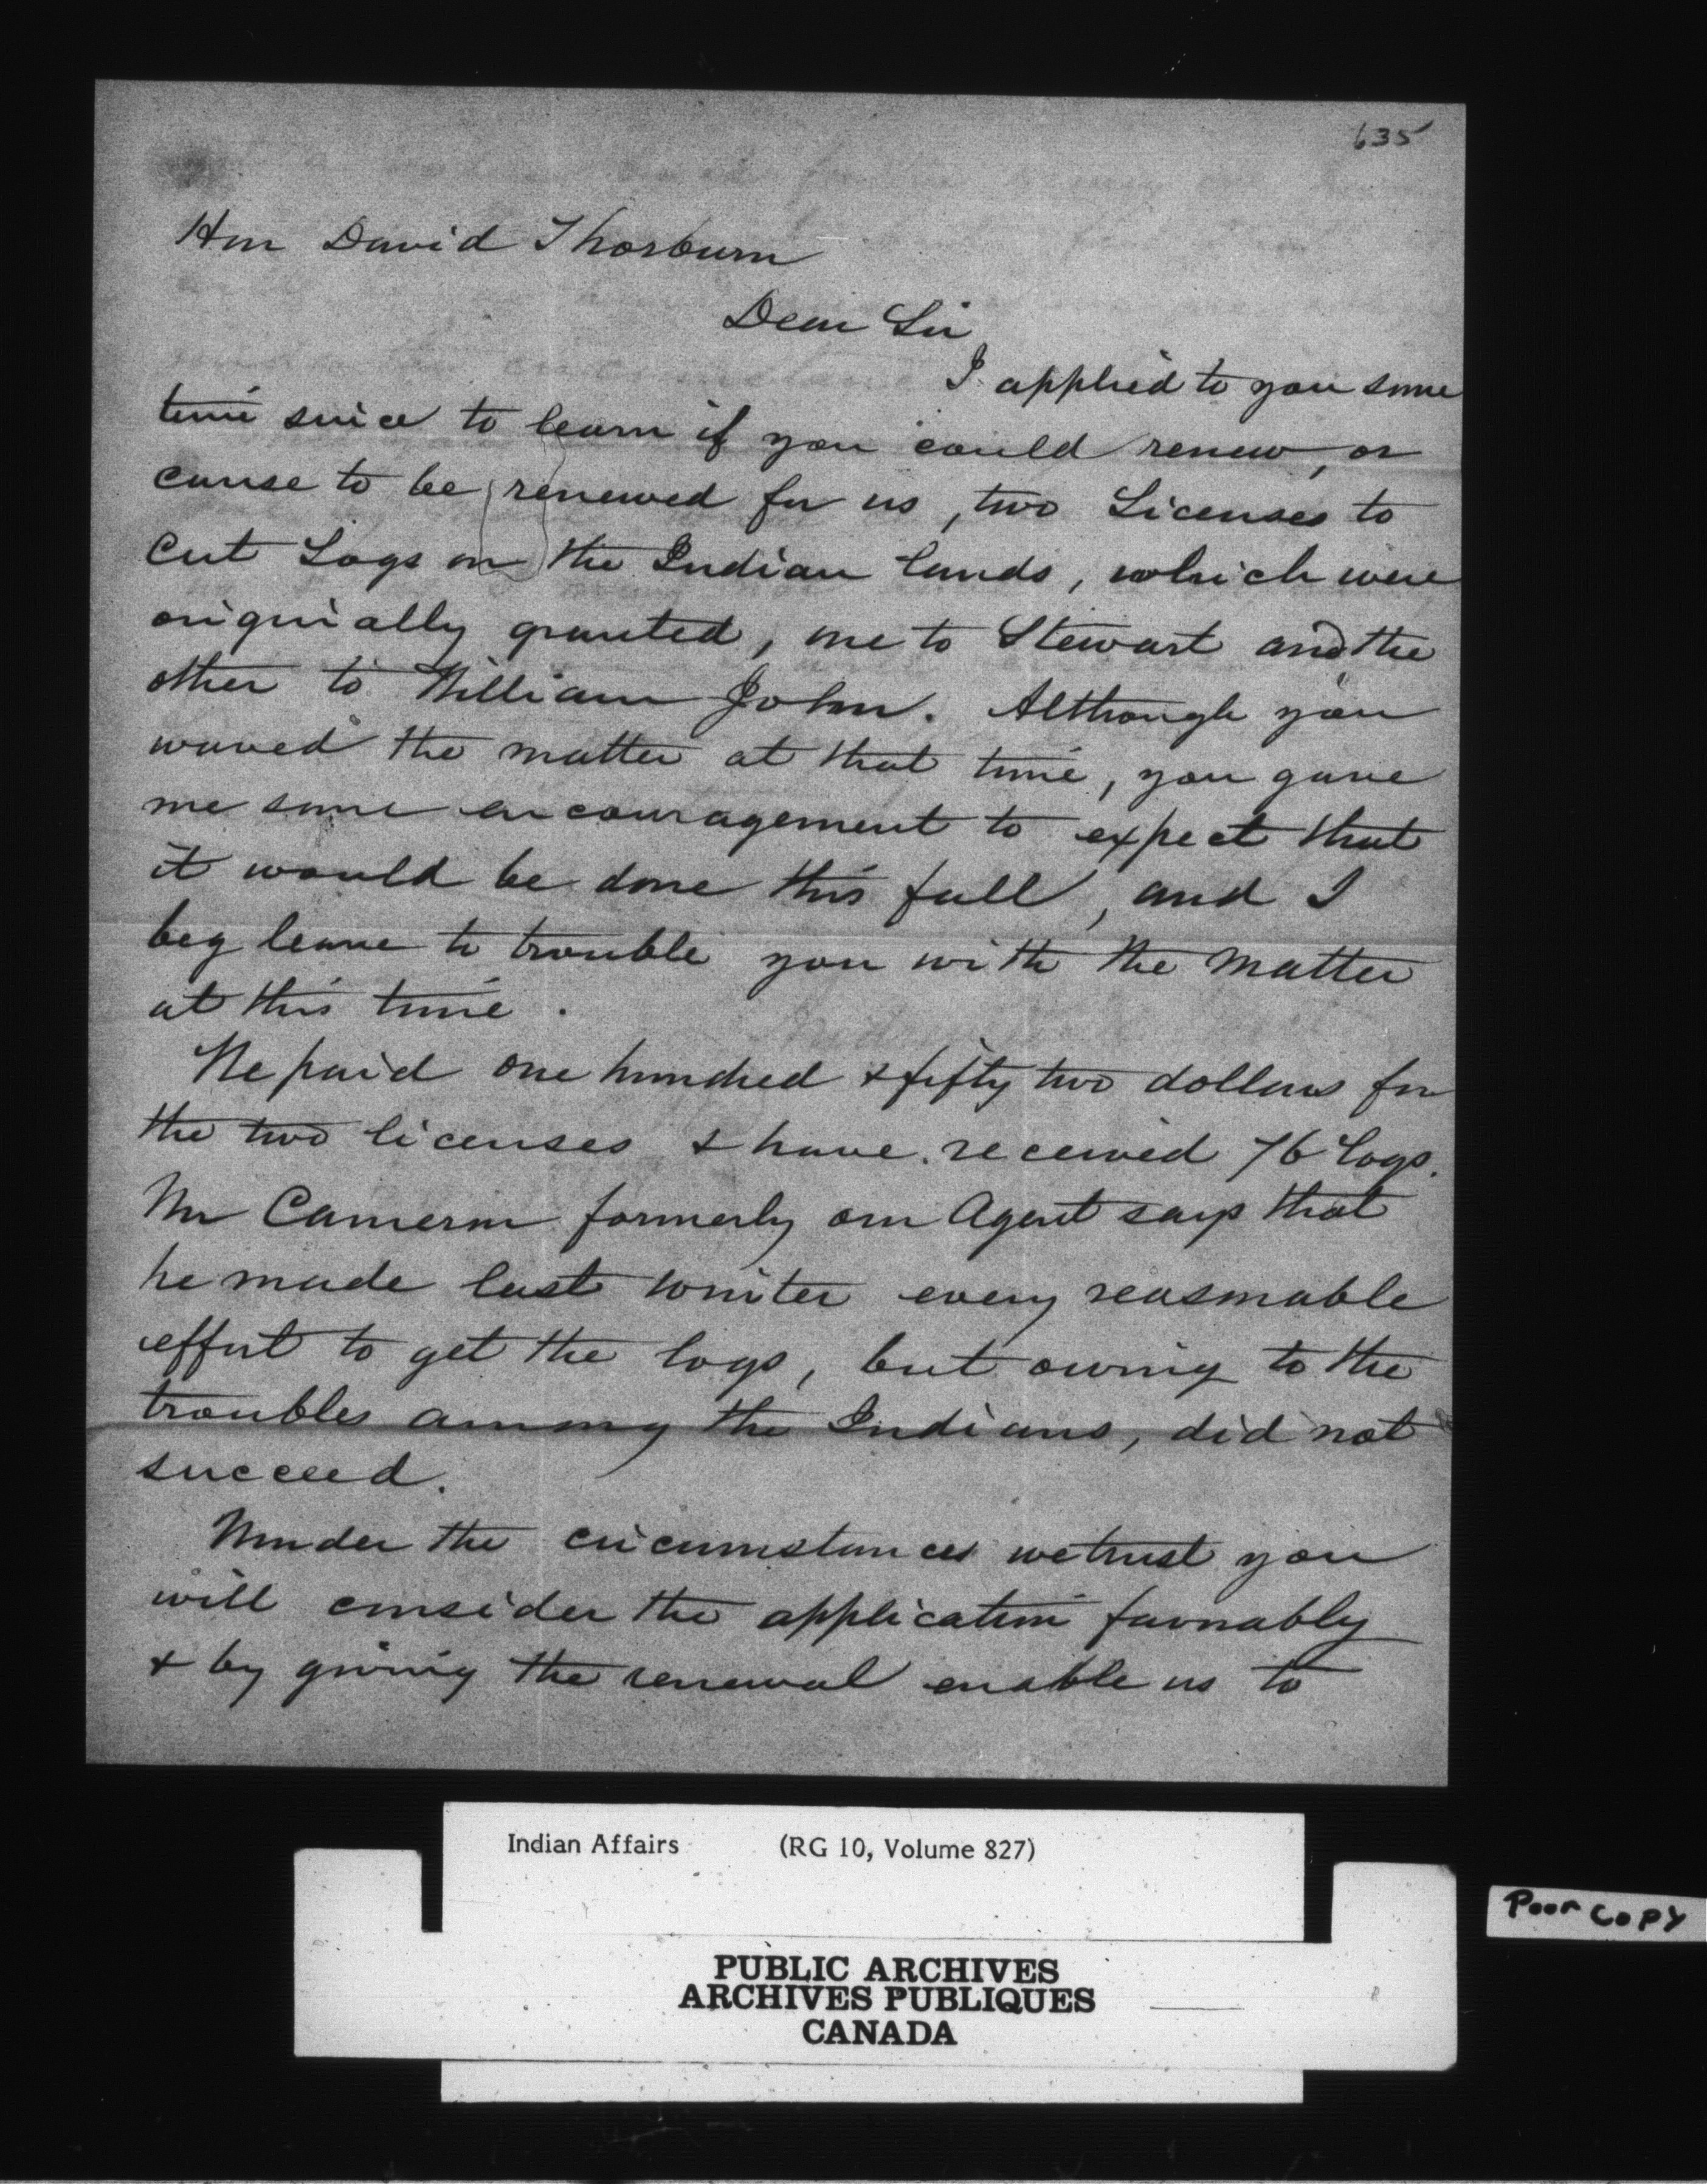 635
Hon David Thorburn
Dear Sir
I applied to you some
time since to learn if you could renew, or
cause to be renewed for us, two Licenses to
Cut Logs on the Indian lands, which were
originally granted, one to Stewart and the
other to William John. Although you
waved the matter at that time, you gave
me some encouragement to expect that
it would be done this fall, and I
beg leave to trouble you with the matter
at this time.
We paid one hundred & fifty two dollars for
the two licenses & have received 76 Logs.
Mr Cameron formerly our Agent says that
he made last winter every reasonable
effort to get the logs, but owing to the
troubles among the Indians, did not
succeed.
Under the circumstances we trust you
will consider the application favorably
& by giving the renewal enable us to
Indian Affairs (RG 10, Volume 827)
PUBLIC ARCHIVES
ARCHIVES PUBLIQUES
CANADA
Poor Copy